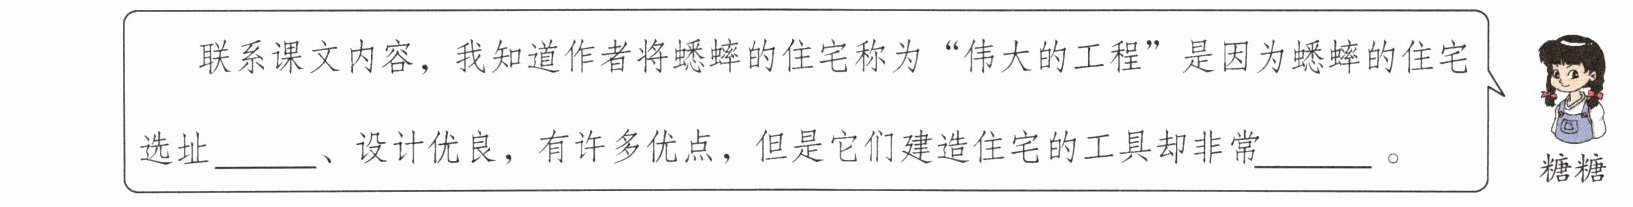 联系课文内容，我知道作者将蟋蟀的住宅称为“伟大的工程”是因为蟋蟀的住宅
选址______、设计优良，有许多优点，但是它们建造住宅的工具却非常______。
糖糖